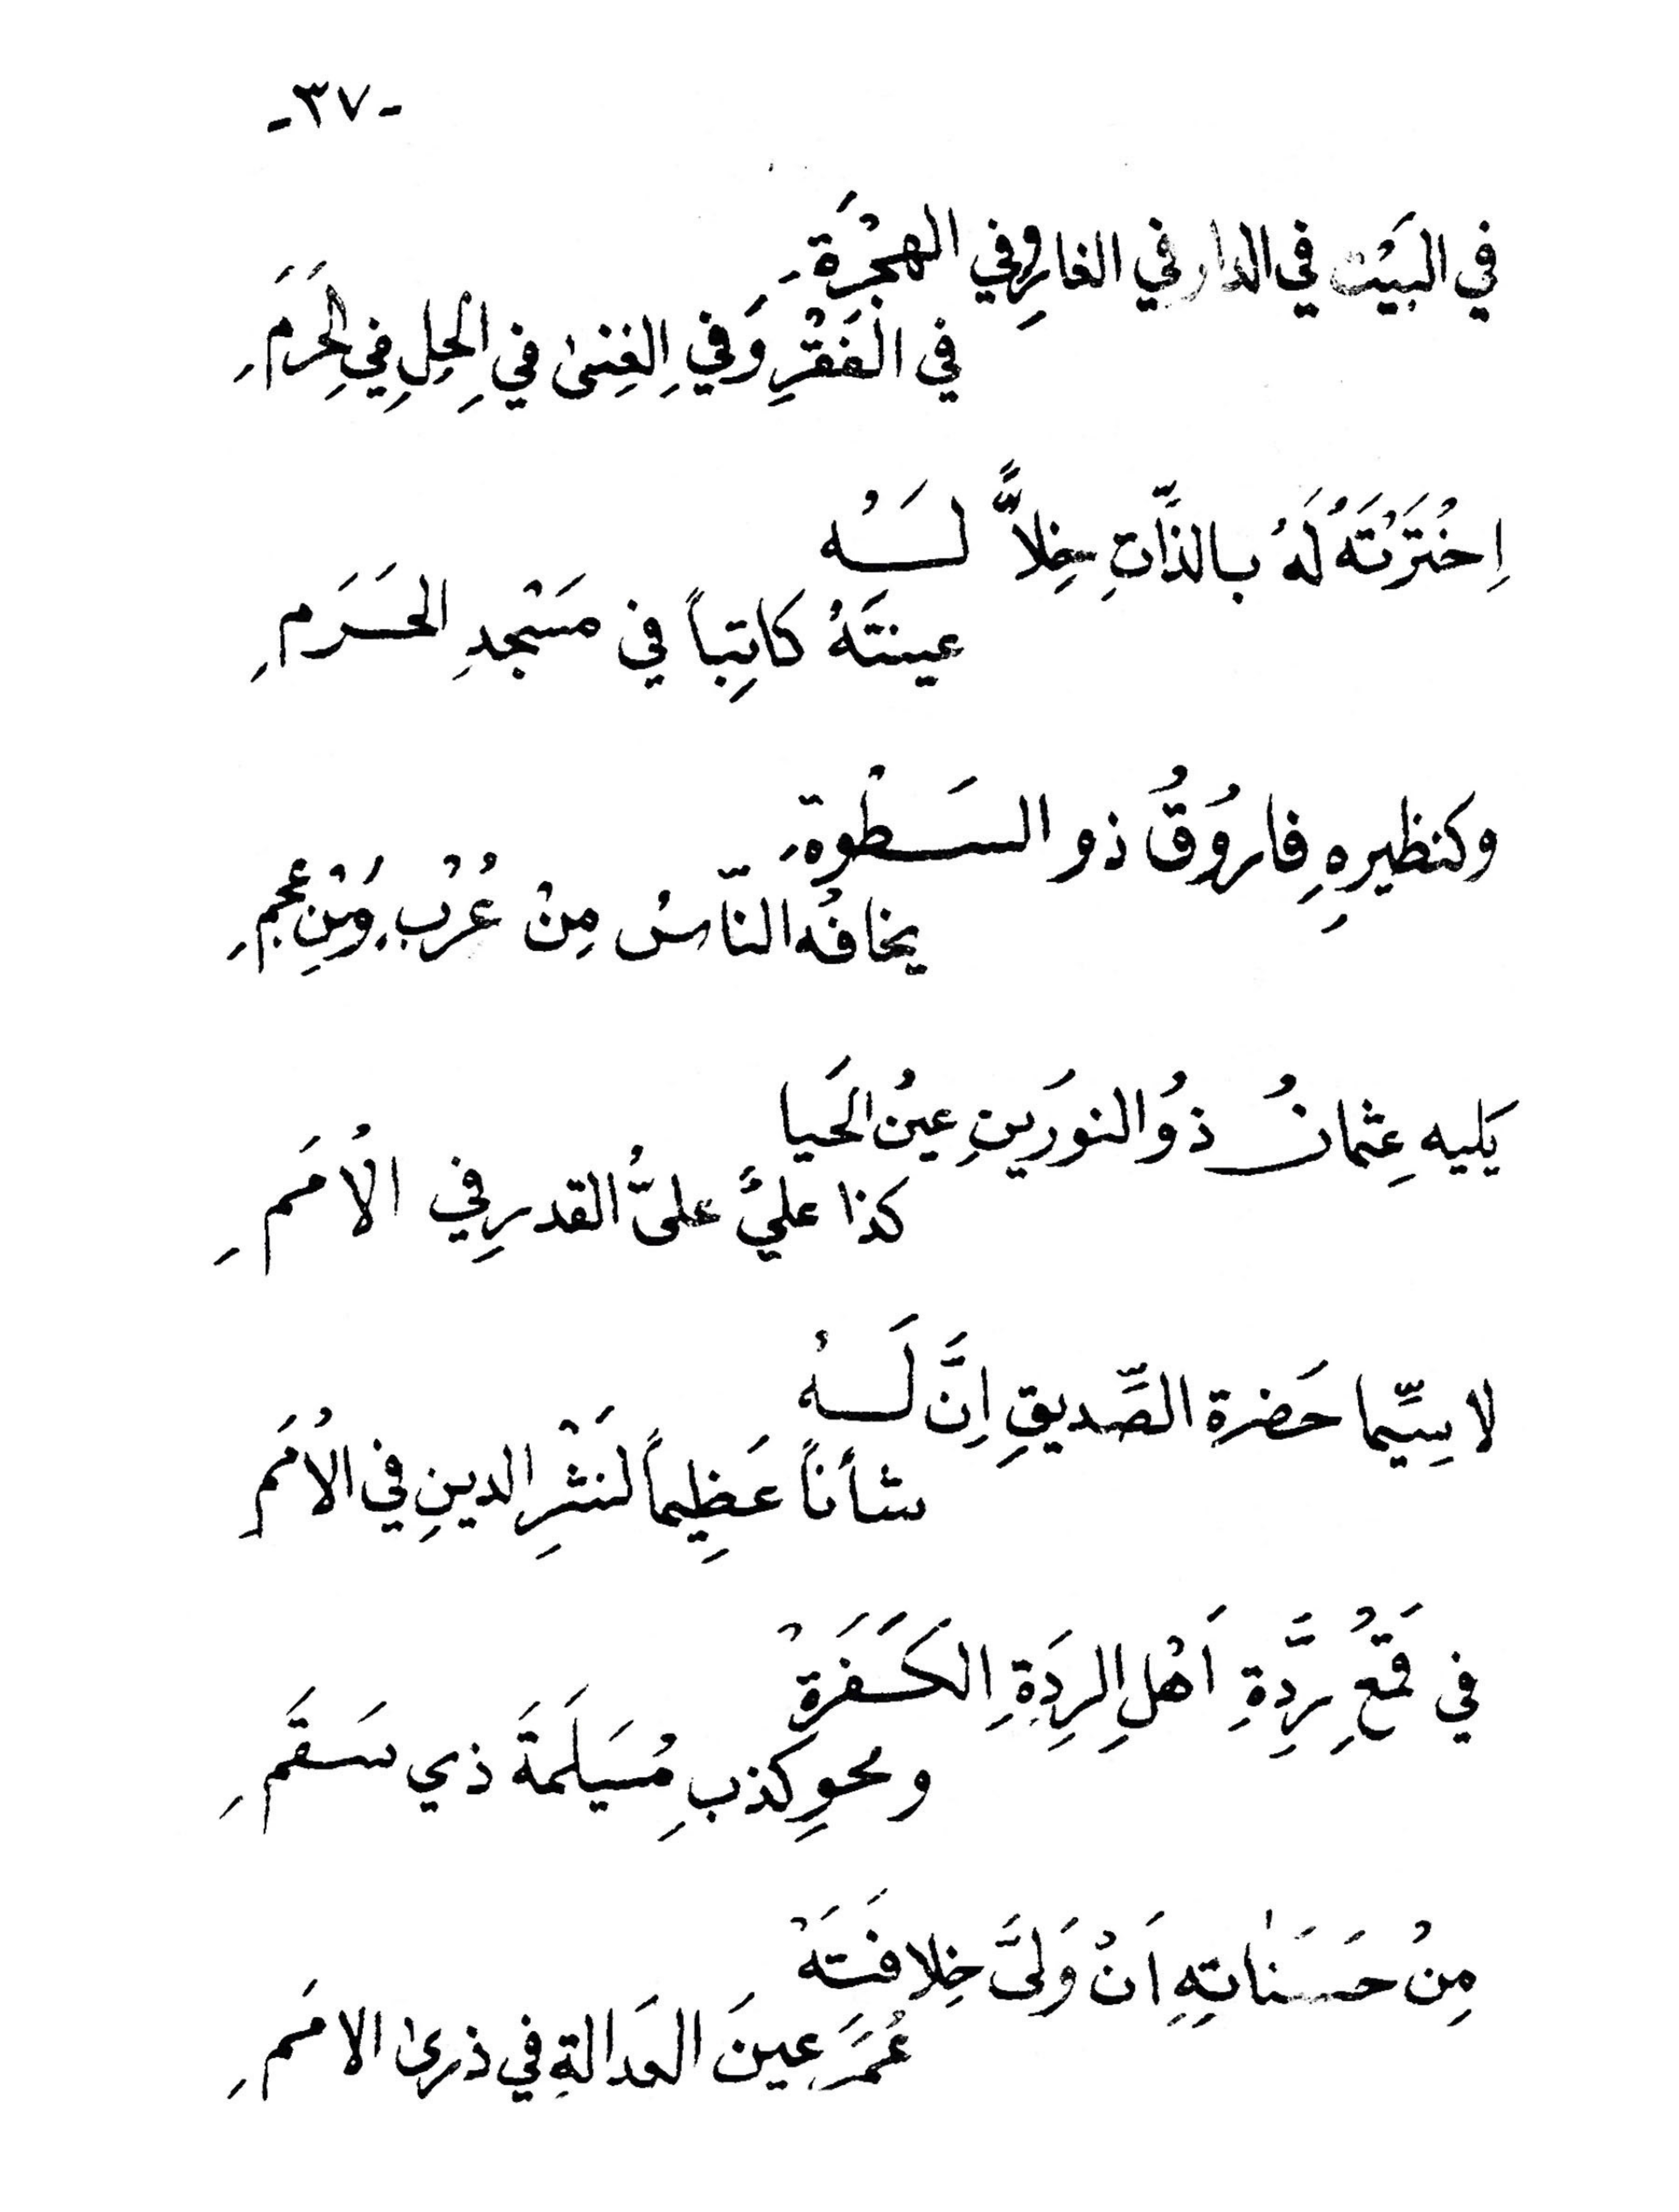 -٣٧-
في البَيْت في الدار في الغارِ وفي الهِجْرَةِ
في الفَقْرِ وَفي الغِنىٰ في الحِلِ في الحَرَمِ
اِخْتَرْتَهُ لَهُ بالذَّاتِ خِلاًّ لَهُ
عينتَهُ كاتِباً في مَسْجدِ الحَرَمِ
وكنظيرِهِ فاروُقُ ذو السَطْوةِ
يخافُه النّاسُ مِنْ عُرْبٍ وَمِنْ عجمٍ
يَليه عِثمانُ ذوُ النورَينِ عينُ الحَيا
كذا عليٌّ علىُّ القدرِ في الاُمَمِ
لا سِيّما حَضرة الصِّديقِ اِنَّ لَهُ
شأناً عَظِيماً لنَشْرِ الدينِ في الاُمَمِ
في قَمْعِ رِدَّةِ اَهْلِ الرِدَةِ الكَفَرَةْ
ومحوِ كذبِ مُسَيلَمَةَ ذي سَقَمِ
مِنْ حَسَنٰاتِهِ اَنْ وَلىَّ خِلافَتَهْ
عُمَرَ عينَ العَدالةِ في ذرىٰ الامَمِ